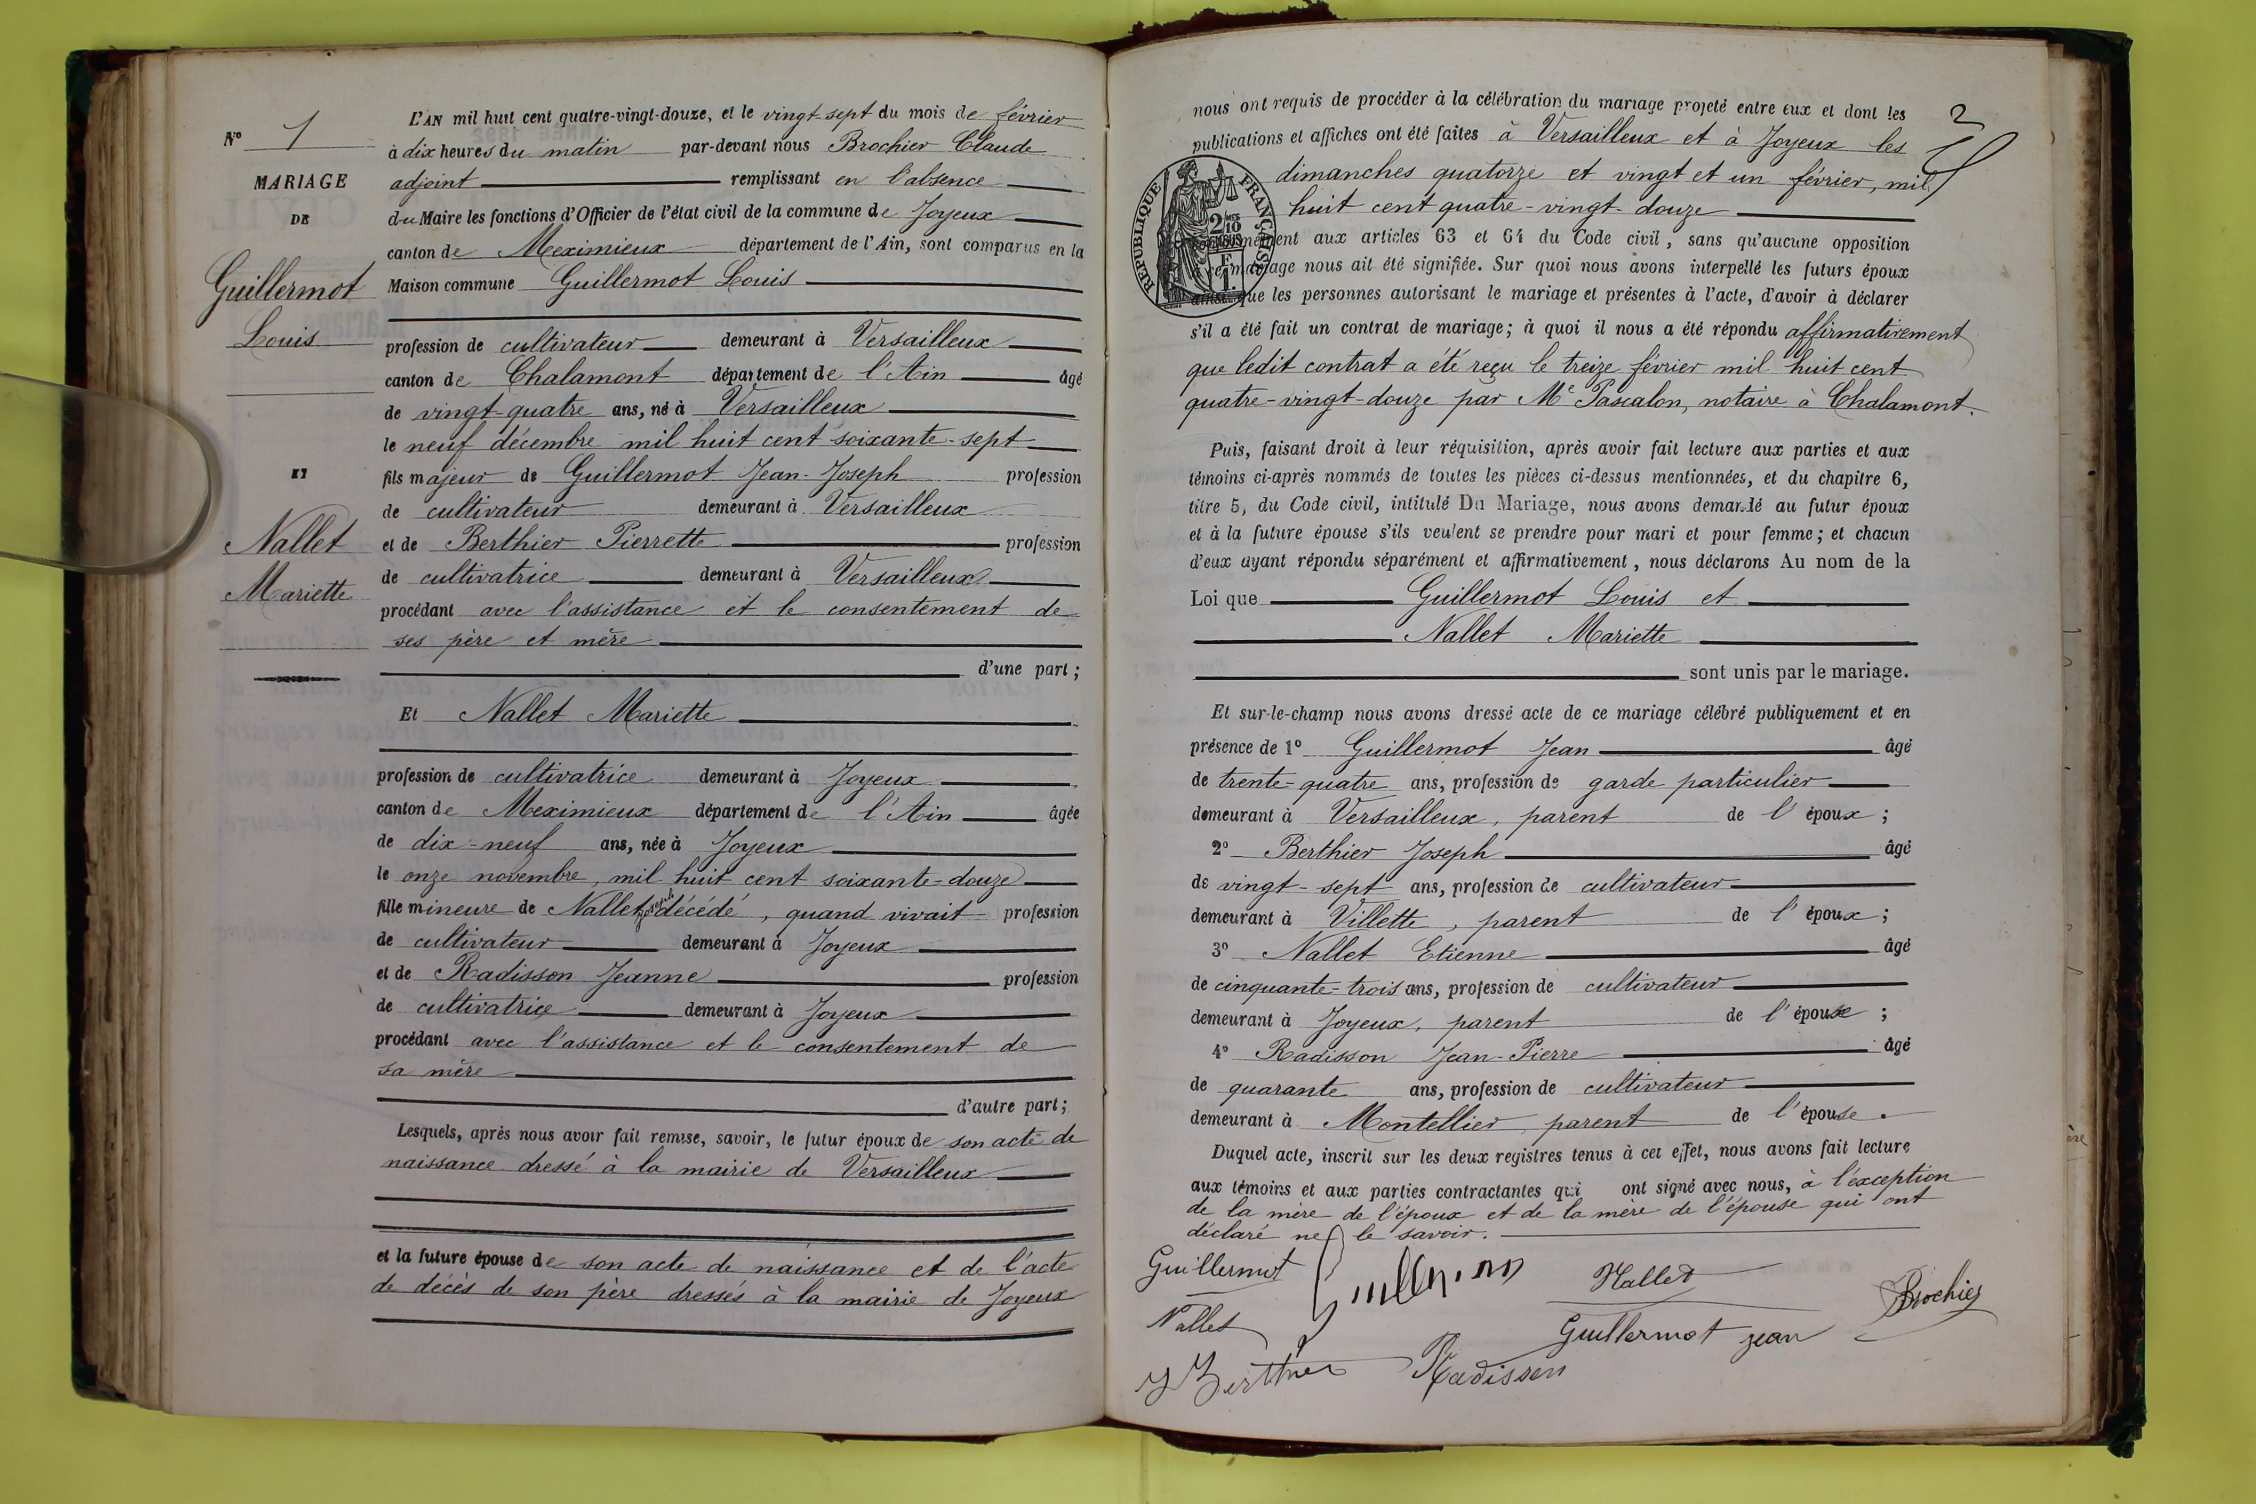 N° 1
MARIAGE
DE
Guillermot
Louis
ET
Nallet
Mariette
L'AN mil huit cent quatre-vingt-douze, et le vingt-sept du mois de février
à dix heures du matin par-devant nous Brochier Claude
adjoint remplissant en l'absence
du Maire les fonctions d'Officier de l'état civil de la commune de Joyeux
canton de Meximieux département de l'Ain, sont comparus en la
Maison commune Guillermot Louis
profession de cultivateur demeurant à Versailleux
canton de Chalamont département de l'Ain âgé
de vingt-quatre ans, né à Versailleux
le neuf décembre mil huit cent soixante-sept
fils majeur de Guillermot Jean-Joseph profession
de cultivateur demeurant à Versailleux
et de Berthier Pierrette profession
de cultivatrice demeurant à Versailleux
procédant avec l'assistance et le consentement de
ses père et mère
d'une part;
Et Nallet Mariette
profession de cultivatrice demeurant à Joyeux
canton de Meximieux département de l'Ain âgée
de dix-neuf ans, née à Joyeux
le onze novembre, mil huit cent soixante-douze
fille mineure de Nallet Joseph décédé, quand vivait profession
de cultivateur demeurant à Joyeux
et de Radisson Jeanne profession
de cultivatrice demeurant à Joyeux
procédant avec l'assistance et le consentement de
sa mère
d'autre part;
Lesquels, après nous avoir fait remise, savoir, le futur époux de son acte de
naissance dressé à la mairie de Versailleux
et la future épouse de son acte de naissance et de l'acte
de décès de son père dressés à la mairie de Joyeux
2
nous ont requis de procéder à la célébration du mariage projeté entre eux et dont les
publications et affiches ont été faites à Versailleux et à Joyeux les
dimanches quatorze et vingt et un février, mil
huit cent quatre-vingt-douze
RÉPUBLIQUE FRANÇAISE
conformément aux articles 63 et 64 du Code civil, sans qu'aucune opposition
ce mariage nous ait été signifiée. Sur quoi nous avons interpellé les futurs époux
ainsi que les personnes autorisant le mariage et présentes à l'acte, d'avoir à déclarer
s'il a été fait un contrat de mariage; à quoi il nous a été répondu affirmativement
que ledit contrat a été reçu le treize février mil huit cent
quatre-vingt-douze par Me Pascalon, notaire à Chalamont.
Puis, faisant droit à leur réquisition, après avoir fait lecture aux parties et aux
témoins ci-après nommés de toutes les pièces ci-dessus mentionnées, et du chapitre 6,
titre 5, du Code civil, intitulé Du Mariage, nous avons demandé au futur époux
et à la future épouse s'ils veulent se prendre pour mari et pour femme; et chacun
d'eux ayant répondu séparément et affirmativement, nous déclarons Au nom de la
Loi que Guillermot Louis et
Nallet Mariette
sont unis par le mariage.
Et sur-le-champ nous avons dressé acte de ce mariage célébré publiquement et en
présence de 1° Guillermot Jean âgé
de trente-quatre ans, profession de garde particulier
demeurant à Versailleux, parent de l'époux;
2° Berthier Joseph âgé
de vingt-sept ans, profession de cultivateur
demeurant à Villette, parent de l'époux;
3° Nallet Etienne âgé
de cinquante-trois ans, profession de cultivateur
demeurant à Joyeux, parent de l'épouse;
4° Radisson Jean-Pierre âgé
de quarante ans, profession de cultivateur
demeurant à Montellier parent de l'épouse.
Duquel acte, inscrit sur les deux registres tenus à cet effet, nous avons fait lecture
aux témoins et aux parties contractantes qui ont signé avec nous, à l'exception
de la mère de l'époux et de la mère de l'épouse qui ont
déclaré ne le savoir.
Guillermot
Nallet
Brochier
Nallet
Guillermot jean
J Berthier
Radisson